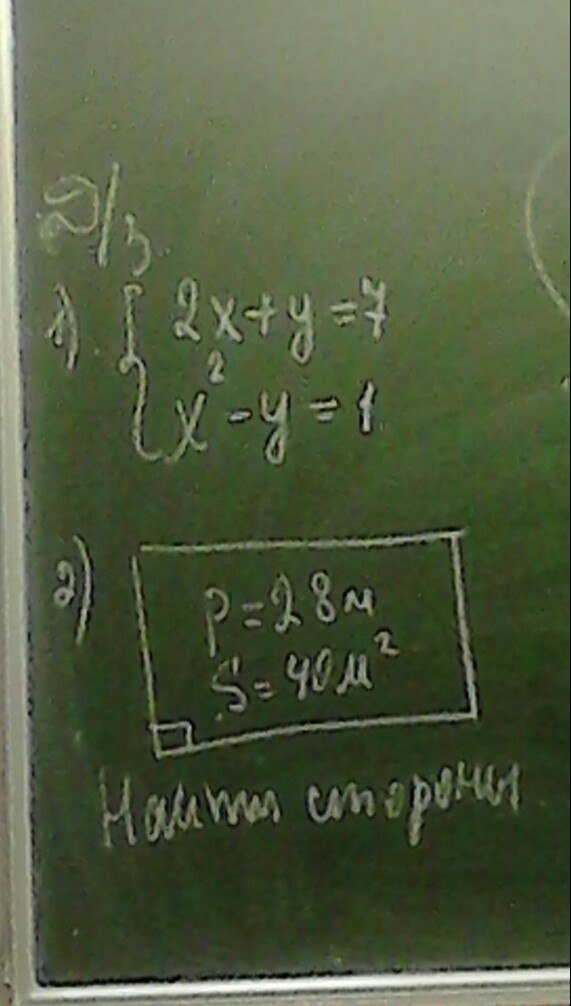 Д/з
1) { 2x + y = 7
x² - y = 1
2)
P = 28 м
S = 40 м²
Найти стороны